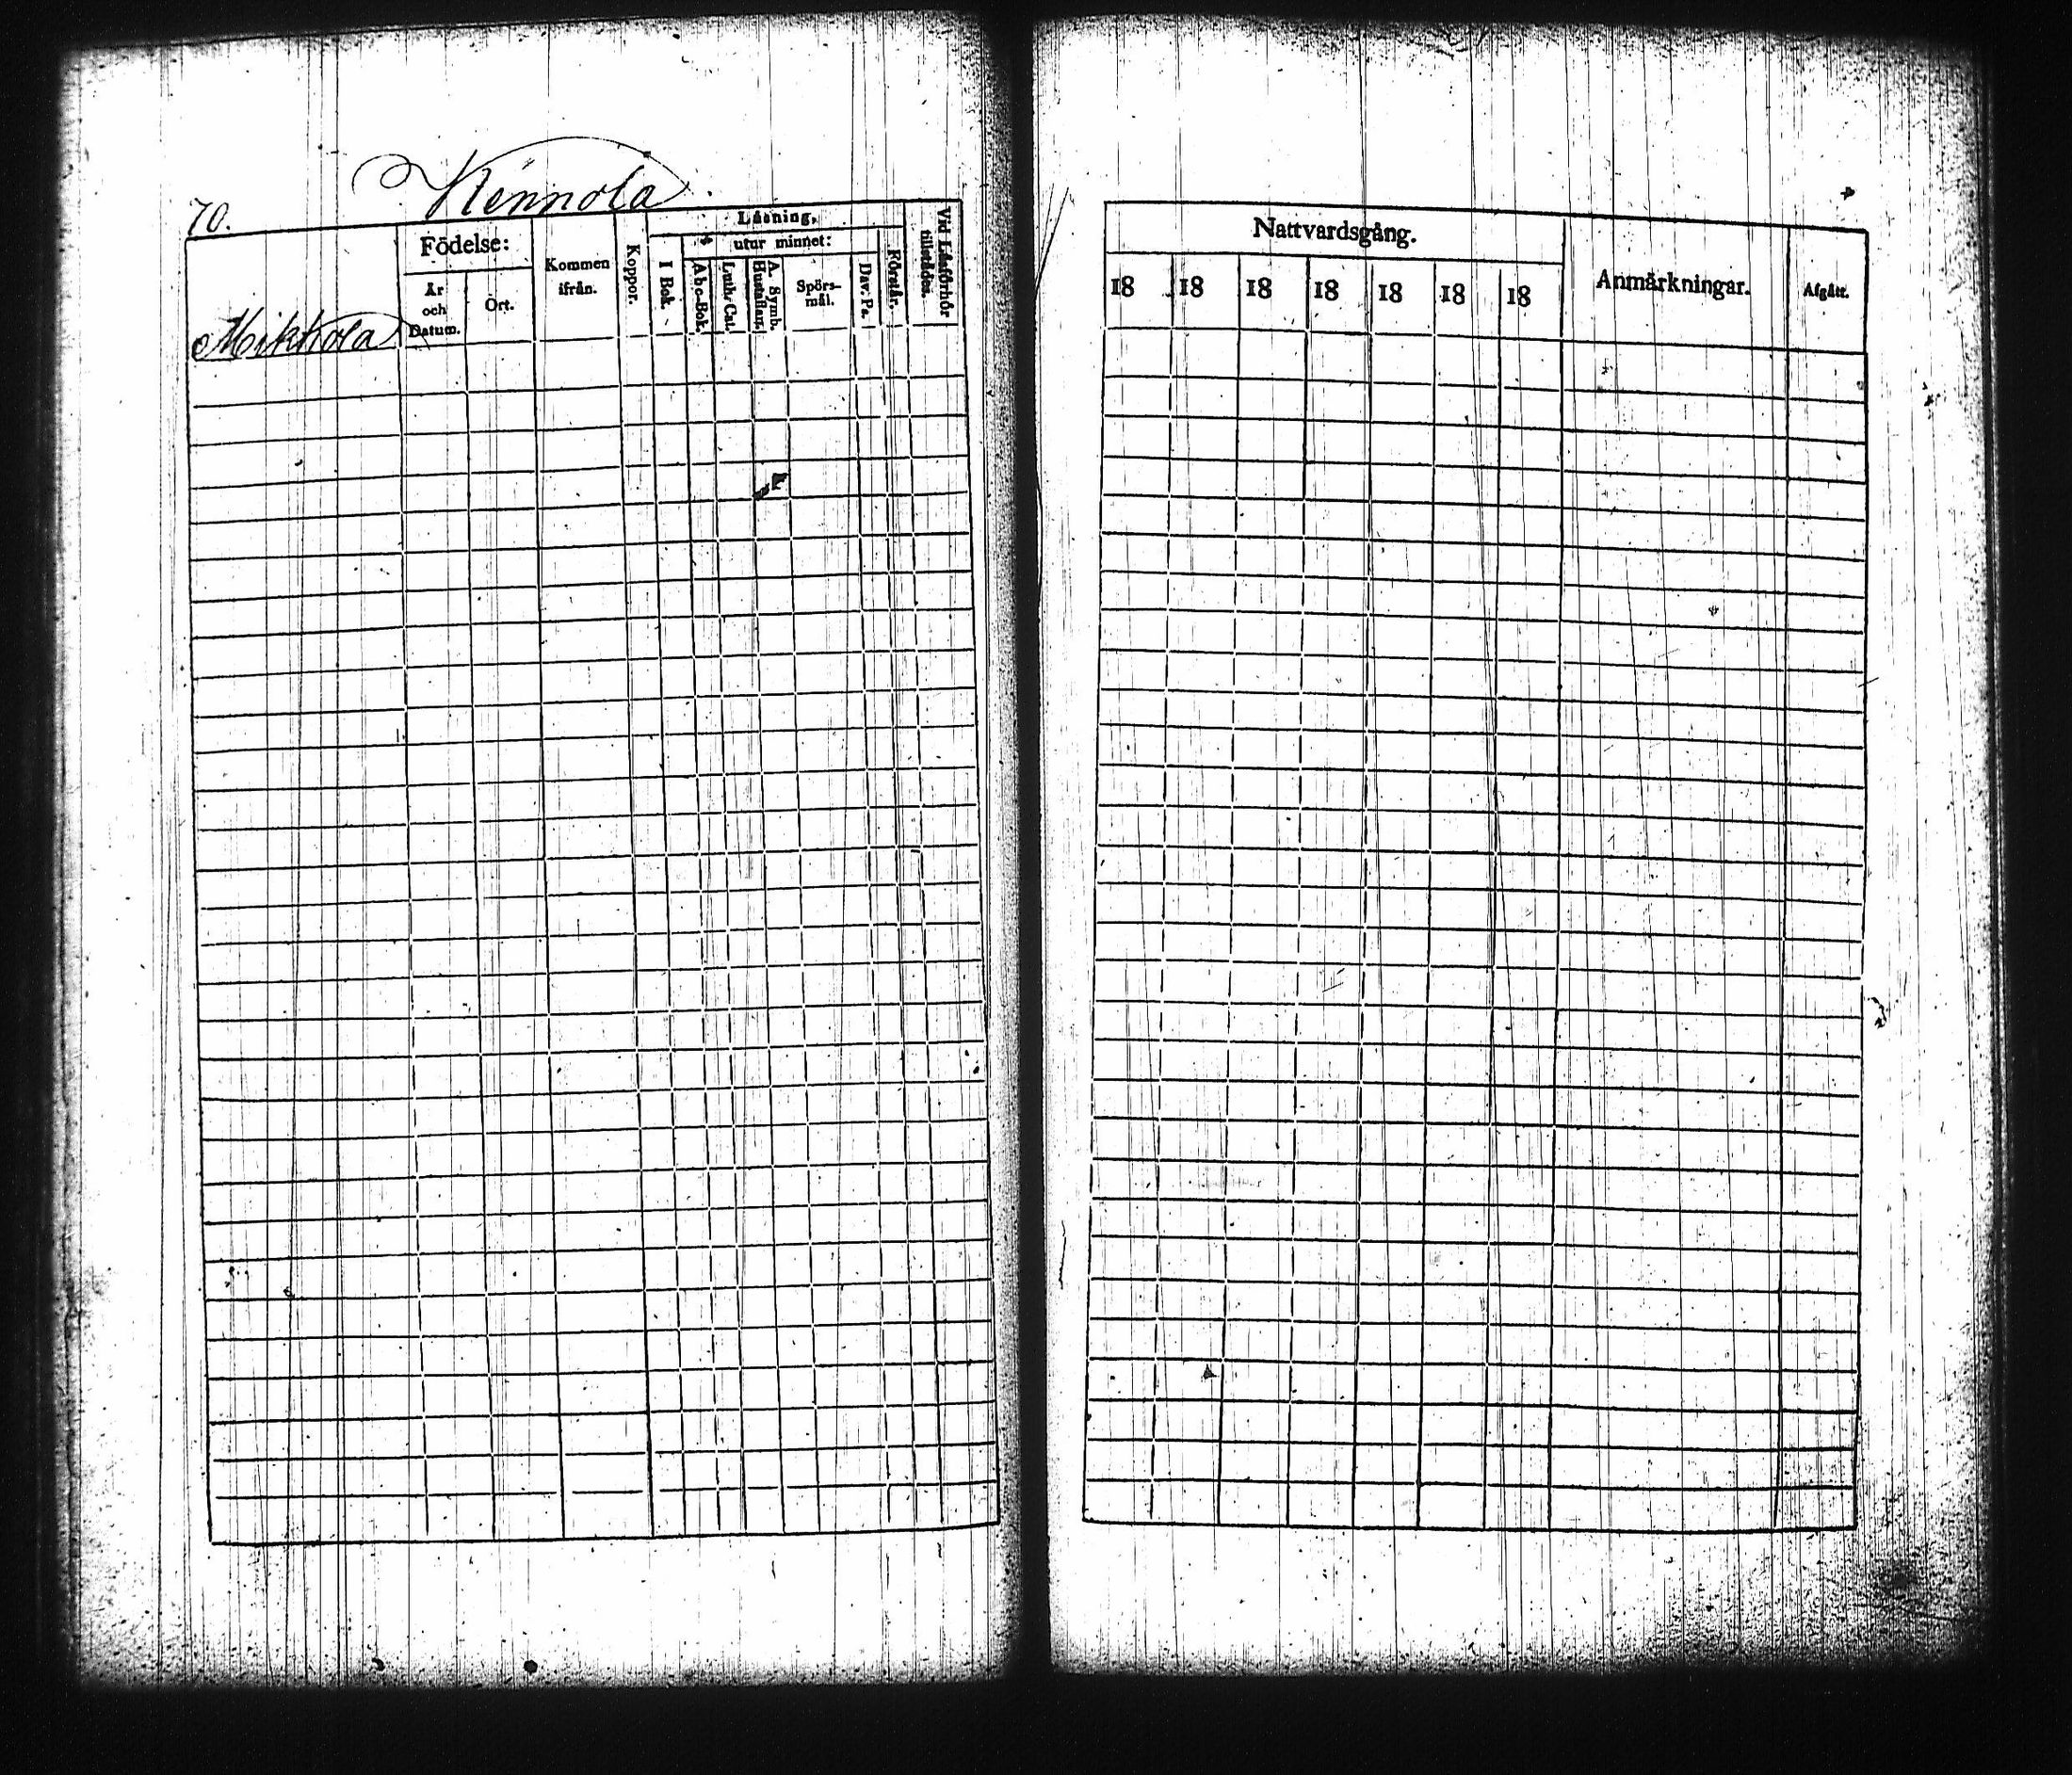 Kennola
70.
Mikkola
Födelse:
År och Datum.
Ort.
Kommen ifrån.
Koppor.
Läsning,
utur minnet:
I Bok.
Abc-Bok.
Luth. Cat.
A. Symb.
Hustaflan.
Spörs-
mål.
Dav. Ps.
Förstår.
Vid Läsförhör
tillstädes.
Nattvardsgång.
18 18 18 18 18 18 18
Anmärkningar.
Afgått.